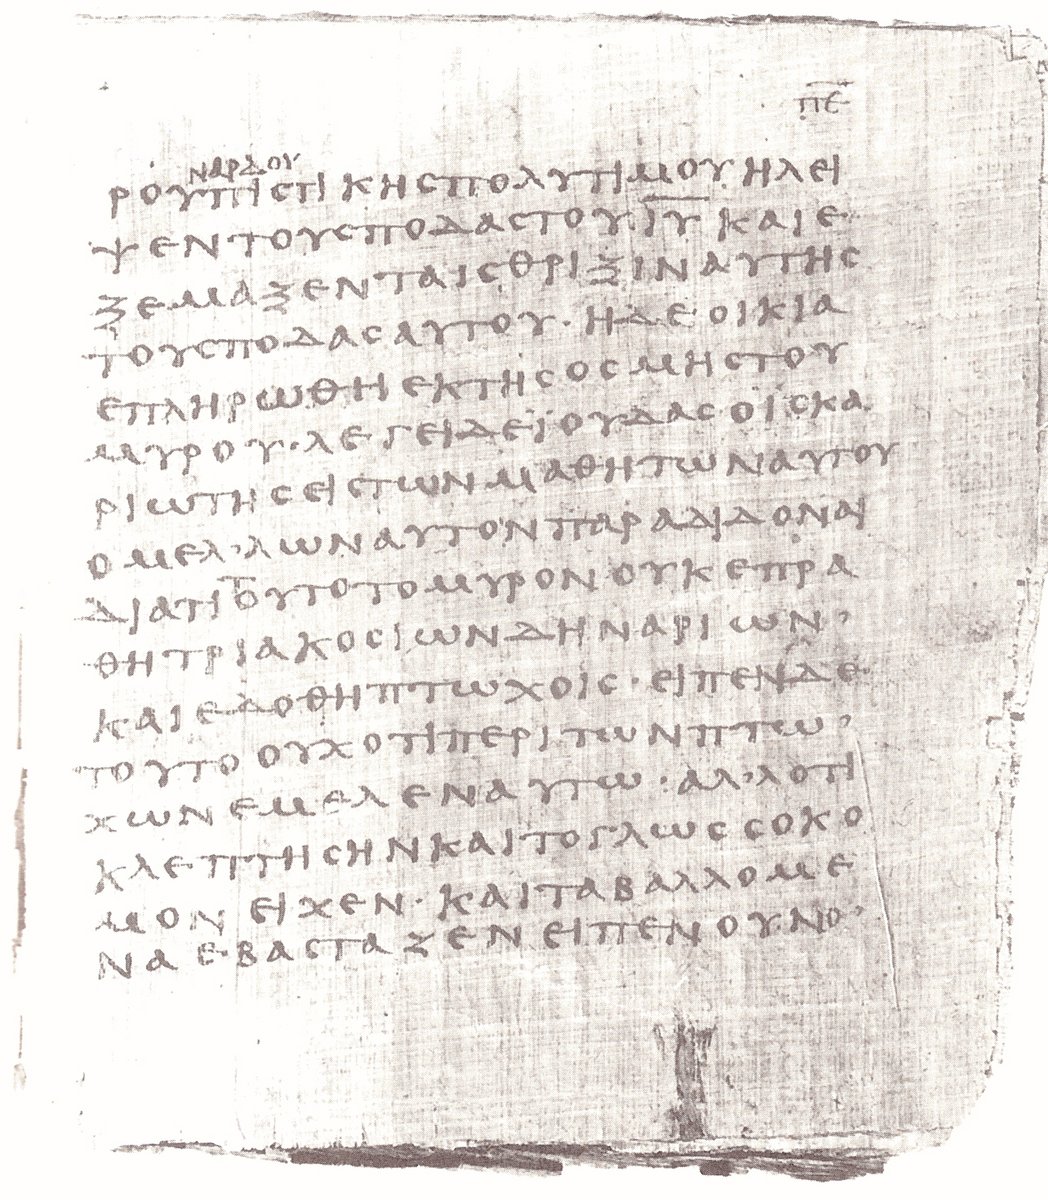 π̅ε̅
ναρδου
ρουπιστικησπολυτιμουηλει
ψεντουσποδαστουι̅υ̅καιε
ξεμαξενταισθριξιναυτης
τουσποδασαυτου·ηδεοικια
επληρωθηεκτησοσμηστου
μυρου·λεγειδεϊουδασοϊσκα
ριωτησειστωνμαθητωναυτου
ομελ᾽λωναυτονπαραδιδοναι
διατιτουτοτομυρονουκεπρα
θητριακοσιωνδηναριων᾽
καιεδοθηπτωχοις·ειπενδε
τουτοουχοτιπεριτωνπτω᾽
χωνεμελεναυτω·αλ᾽λοτι
κλεπτησηνκαιτογλωσσοκο
μονειχεν·καιταβαλλομε
ναεβασταζενειπενουνο᾽